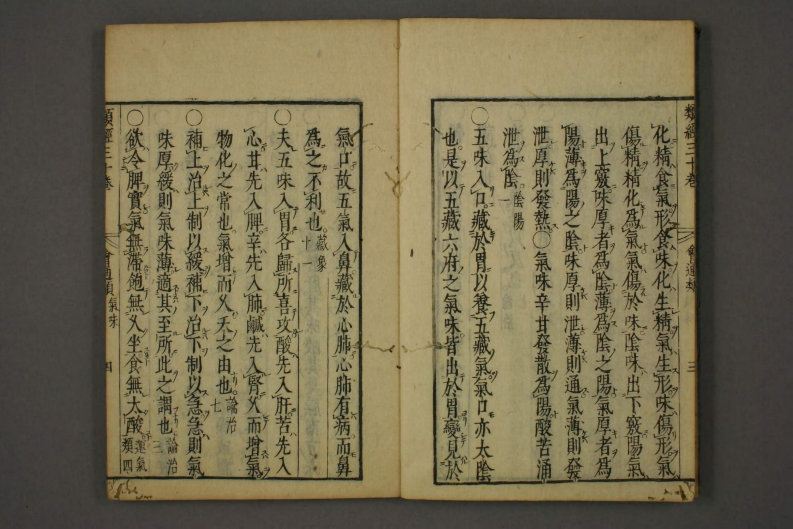 類經三十卷
會通類
三
化精食氣形食味化生精氣生形味傷形氣
傷精精化爲氣氣傷於味陰味出下竅陽氣
出上竅味厚者爲陰薄爲陰之陽氣厚者爲
陽薄爲陽之陰味厚則泄薄則通氣薄則發
泄厚則發熱○氣味辛甘發散爲陽酸苦涌
泄爲陰陰陽一
○五味入口藏於胃以養五藏氣氣口亦太陰
也是以五藏六府之氣味皆出於胃變見於
氣口故五氣入鼻藏於心肺心肺有病而鼻
爲之不利也藏象十一
○夫五味入胃各歸所喜攻酸先入肝苦先入
心甘先入脾辛先入肺鹹先入腎久而增氣
物化之常也氣增而久夭之由也論治七
○補上治上制以緩補下治下制以急急則氣
味厚緩則氣味薄適其至所此之謂也論治三
○欲令脾實氣無滯飽無久坐食無太酸運氣類四
類經三十卷
會通類
氣味
四